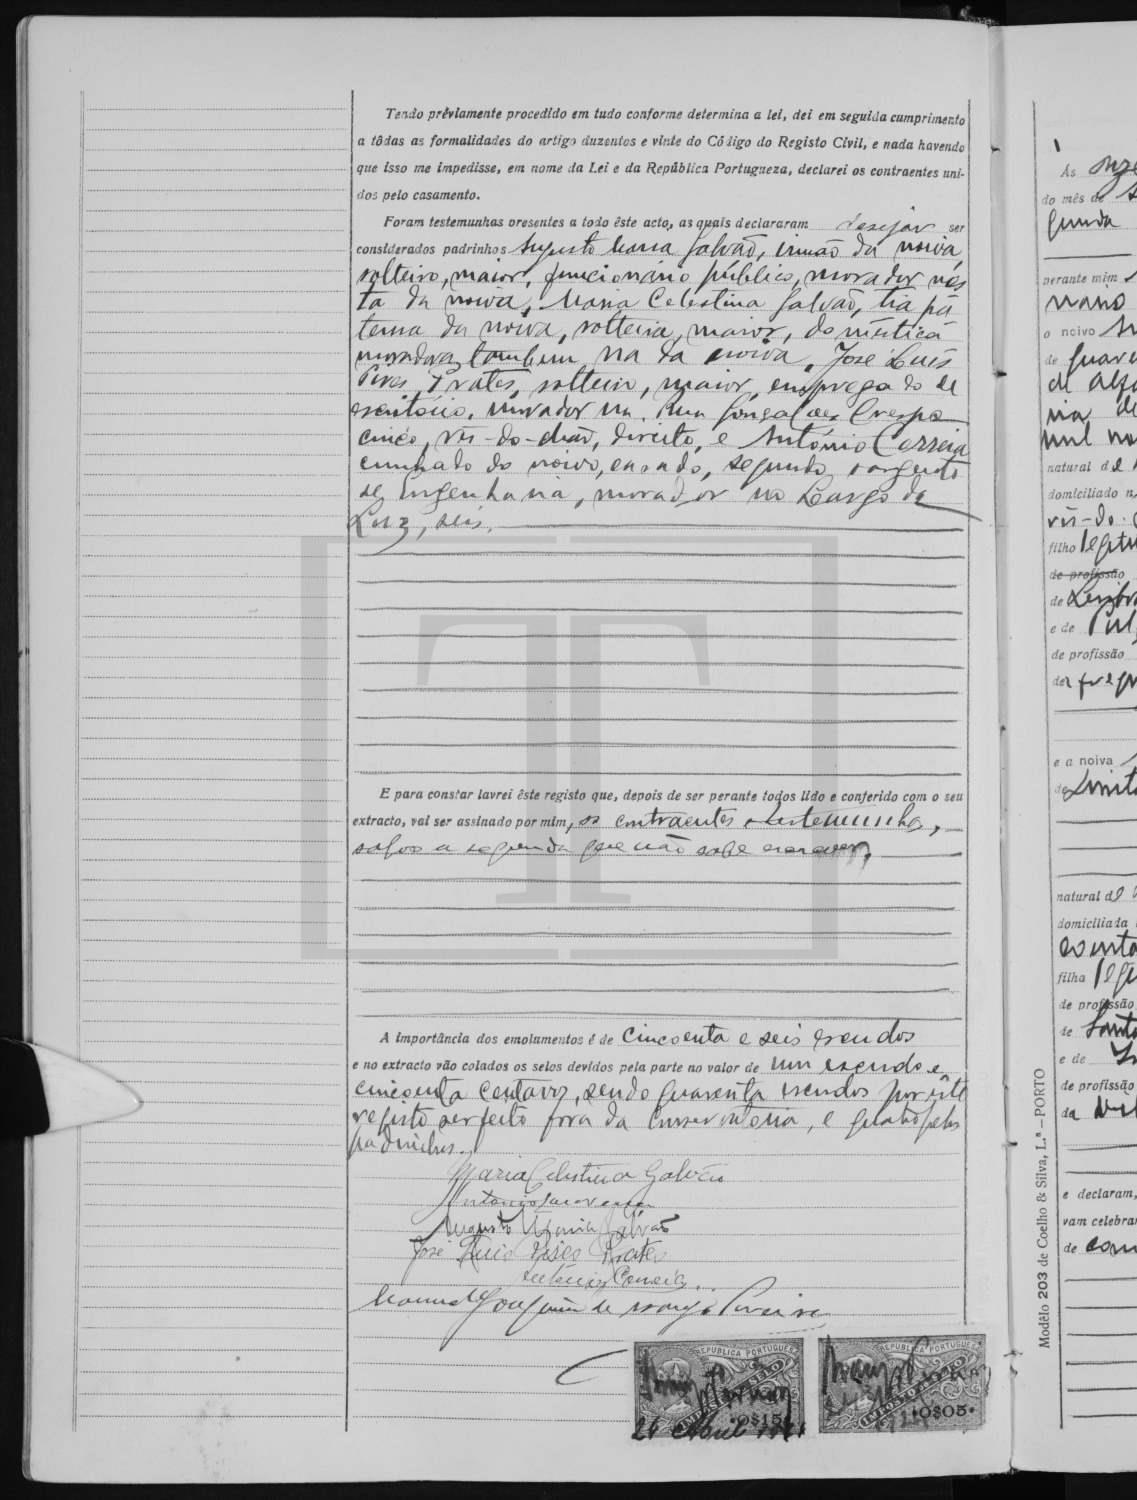 Tendo préviamente procedido em tudo conforme determina a lei, dei em seguida cumprimento
a tôdas as formalidades do artigo duzentos e vinte do Código do Registo Civil, e nada havendo
que isso me impedisse, em nome da Lei e da República Portugueza, declarei os contraentes uni-
dos pelo casamento.
Foram testemunhas presentes a todo êste acto, as quais declararam desejar ser
considerados padrinhos Augusto Maria Galvão, irmão da noiva,
solteiro, maior, funcionário público, morador nes
ta da noiva, Maria Celestina Galvão, tia pa
terna da noiva, solteira, maior, doméstica
moradora tambem na da noiva, José Luís
Pires Prates, solteiro, maior, empregado de
escritório, morador na Rua Gonçalves Crespo
cinco, rés-do-chão, direito, e António Correia
cunhado do noivo, casado, segundo sargento
de Engenharia, morador no Largo da
Luz, seis.
E para constar lavrei êste registo que, depois de ser perante todos lido e conferido com o seu
extracto, vai ser assinado por mim, os contraentes e testemunhas,
salvo a segunda que não sabe escrever.
A importância dos emolumentos é de cincoenta e seis escudos
e no extracto vão colados os selos devidos pela parte no valor de um escudo e
cincoenta centavos, sendo quarenta escudos por êste
registo ser feito fora da Conservatoria, e quatro pelos
padrinhos.
Maria Celestina Galvão
Augusto Maria Galvão
José Luis Pires Prates
António Correia
Manuel Joaquim de Pereira
REPUBLICA PORTUGUESA
IMPOSTO DO SELO
0$15
REPUBLICA PORTUGUESA
IMPOSTO DO SELO
0$05
Abril
Às onze
do mês de
gunda
perante mim
o noivo
de
mil no
natural de
domiciliado n
rés-do-
filho legiti
de profissão
de
e de
de profissão
da freg
e a noiva
de
natural de
domiciliada
filha leg
de profissão
de Santo
e de
de profissão
da
e declaram,
vam celebrar
de com
Modêlo 203 de Coelho & Silva, L.ª – PORTO